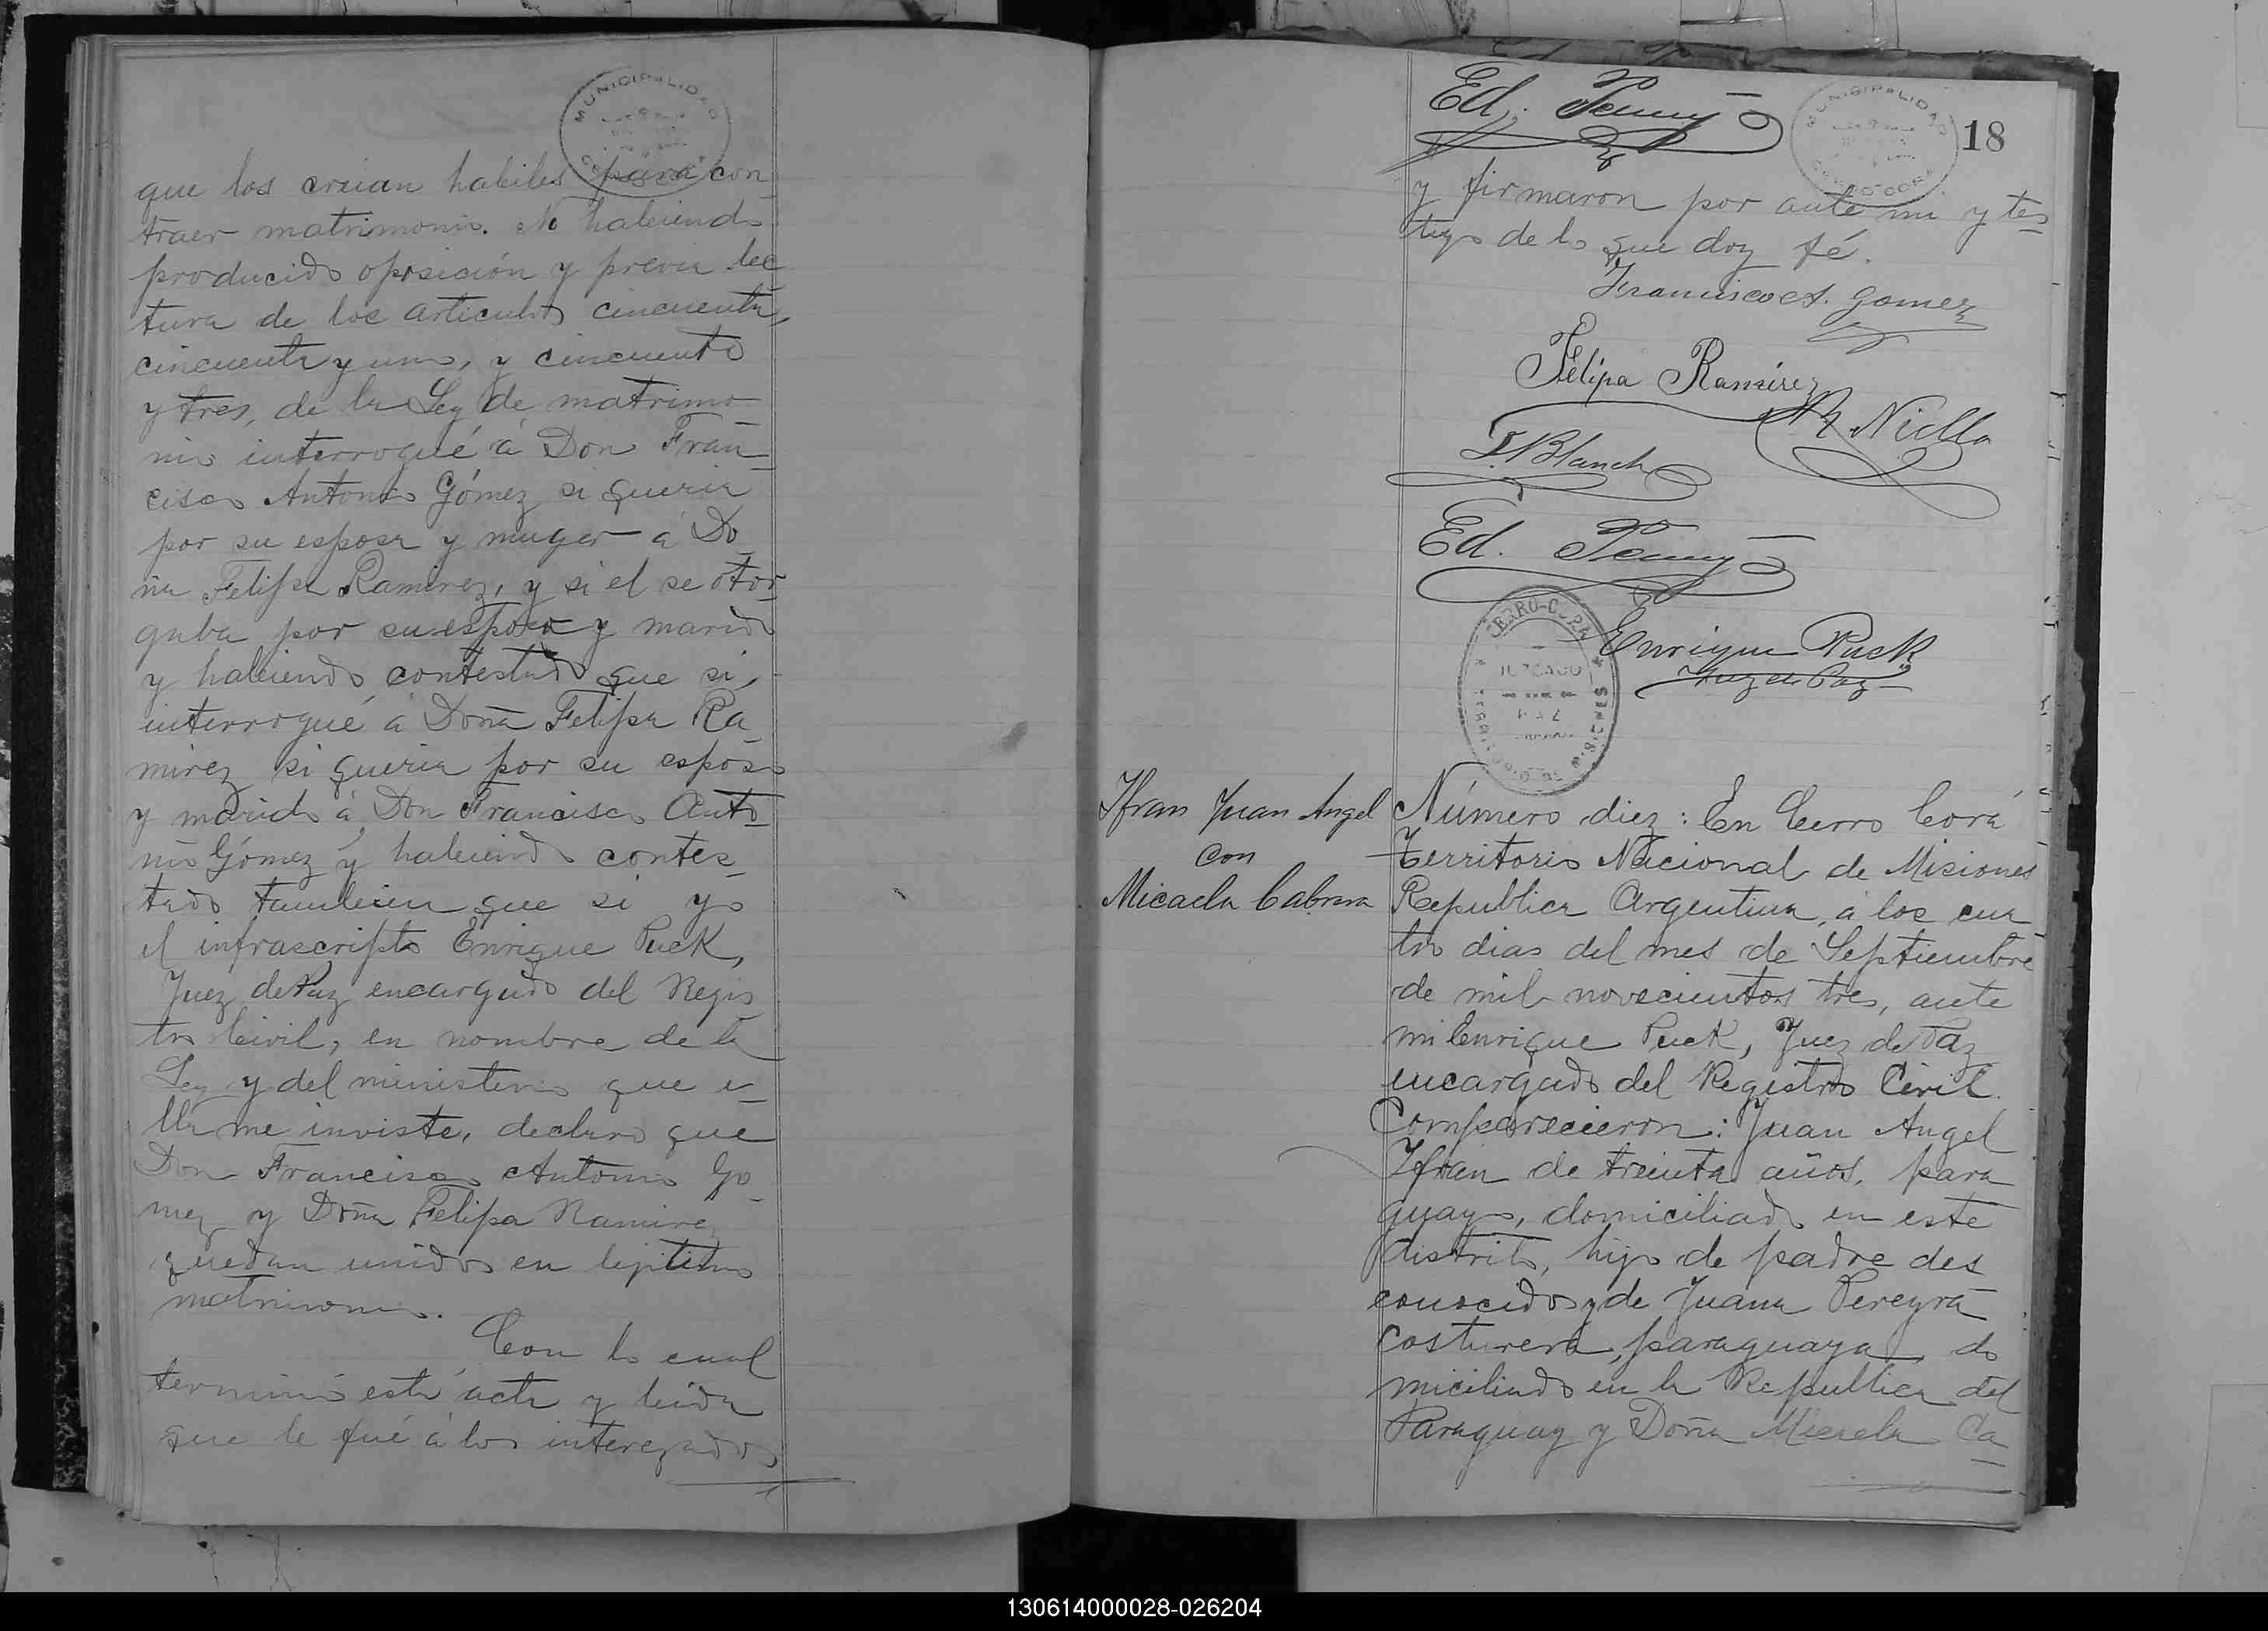 MUNICIPALIDAD
que los creian habiles para con
traer matrimonio. No habiendo
producido oposición y previa lec
tura de los articulos cincuenta,
cincuenta y uno, y cincuenta
y tres, de la Ley de matrimo
nio interrogué á Don Fran
cisco Antonio Gómez si queria
por su esposa y muger á Do
ña Felipa Ramirez, y si el se otor
gaba por su esposo y marido
y habiendo contestado que si,
interrogué á Doña Felipa Ra
mirez si queria por su esposo
y marido á Don Francisco Anto
nio Gómez y habiendo contes
tado tambien que si yo
el infrascripto Enrique Puck,
Juez de Paz encargado del Regis
tro Civil, en nombre de la
Ley y del ministerio que e
lla me inviste, declaro que
Don Francisco Antonio Go
mez y Doña Felipa Ramirez
quedan unidos en lejitimo
matrimonio.
Con lo cual
terminó esta acta y leida
que le fué á los interezados
MUNICIPALIDAD
CERRO CORA
18
Ed. Penny
y firmaron por ante mi y tes
tigo de lo que doy fé.
Francisco A. Gomez
Felipa Ramirez
R Niella
Blanch
Ed. Penny
CERRO-CORA
JUZGADO
PAZ
Enrique Puck
Juez de Paz
Ifran Juan Angel
con
Micaela Cabrera
Número diez: En Cerro Corá
Territorio Nacional de Misiones
Republica Argentina, á los cua
tro dias del mes de Septiembre
de mil novecientos tres, ante
mi Enrique Puck, Juez de Paz
encargado del Registro Civil.
Comparecieron: Juan Angel
Ifran de treinta años, para
guayo, domiciliado en este
distrito, hijo de padre des
conocido y de Juana Pereyra
costurera, paraguaya, do
miciliado en la Republica del
Paraguay y Doña Micaela Ca
130614000028-026204